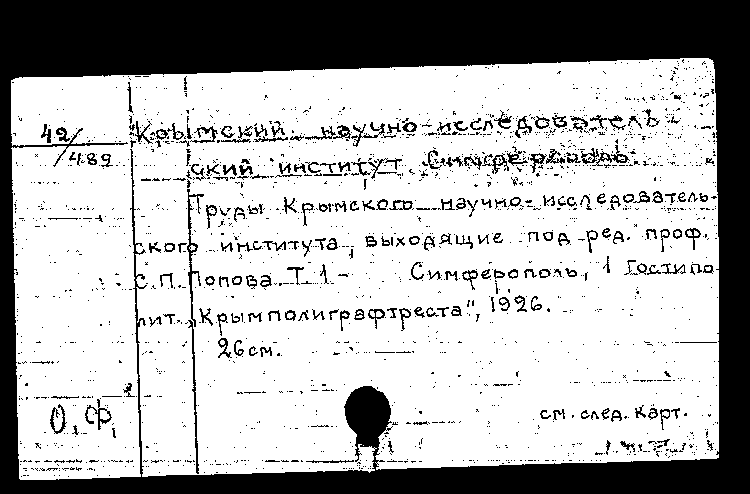 42/489
Крымский научно-исследователь-
ский институт. Симферополь.
Труды Крымского научно-исследователь-
ского института, выходящие под ред. проф.
С.П. Попова. Т. 1 - Симферополь, 1 Гостипо-
лит. „Крымполиграфтреста", 1926.
26 см.
О. Ф.
см. след. карт.